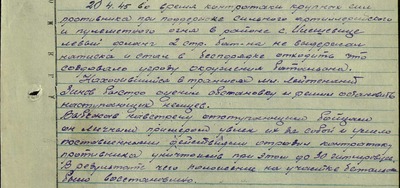 20.4.45 во время контратаки крупных сил
противника при поддержке сильного артиллерийского
и пулеметного огня в районе с.
левый фланг 2 стр. бат-на не выдержал
натиска и стал в беспорядке отходить что
создавало угрозу окружения батальона.
Находившийся в траншеях мл. лейтенант
оценил обстановку и решил остановить
наступающих немцев.
навстречу отступающим бойцам
он личным примером увлек их за собой и умело
поставленными действиями отразил контратаку
противника уничтожив при этом до 30 гитлеровцев.
В результате чего положение на участке батальона
было восстановлено.